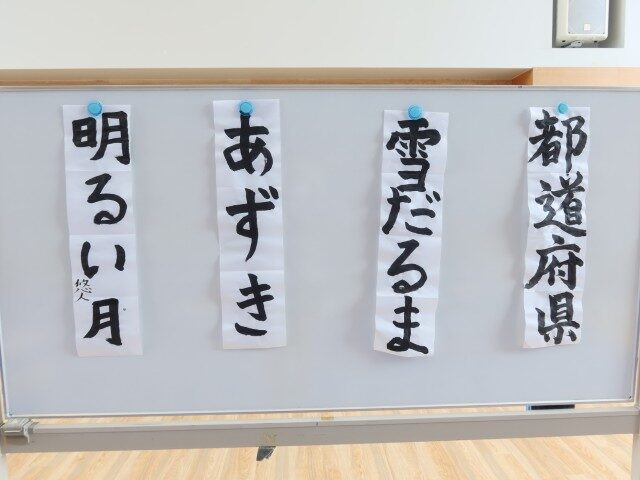 都道府県
雪だるま
あずき
明るい月
悠人